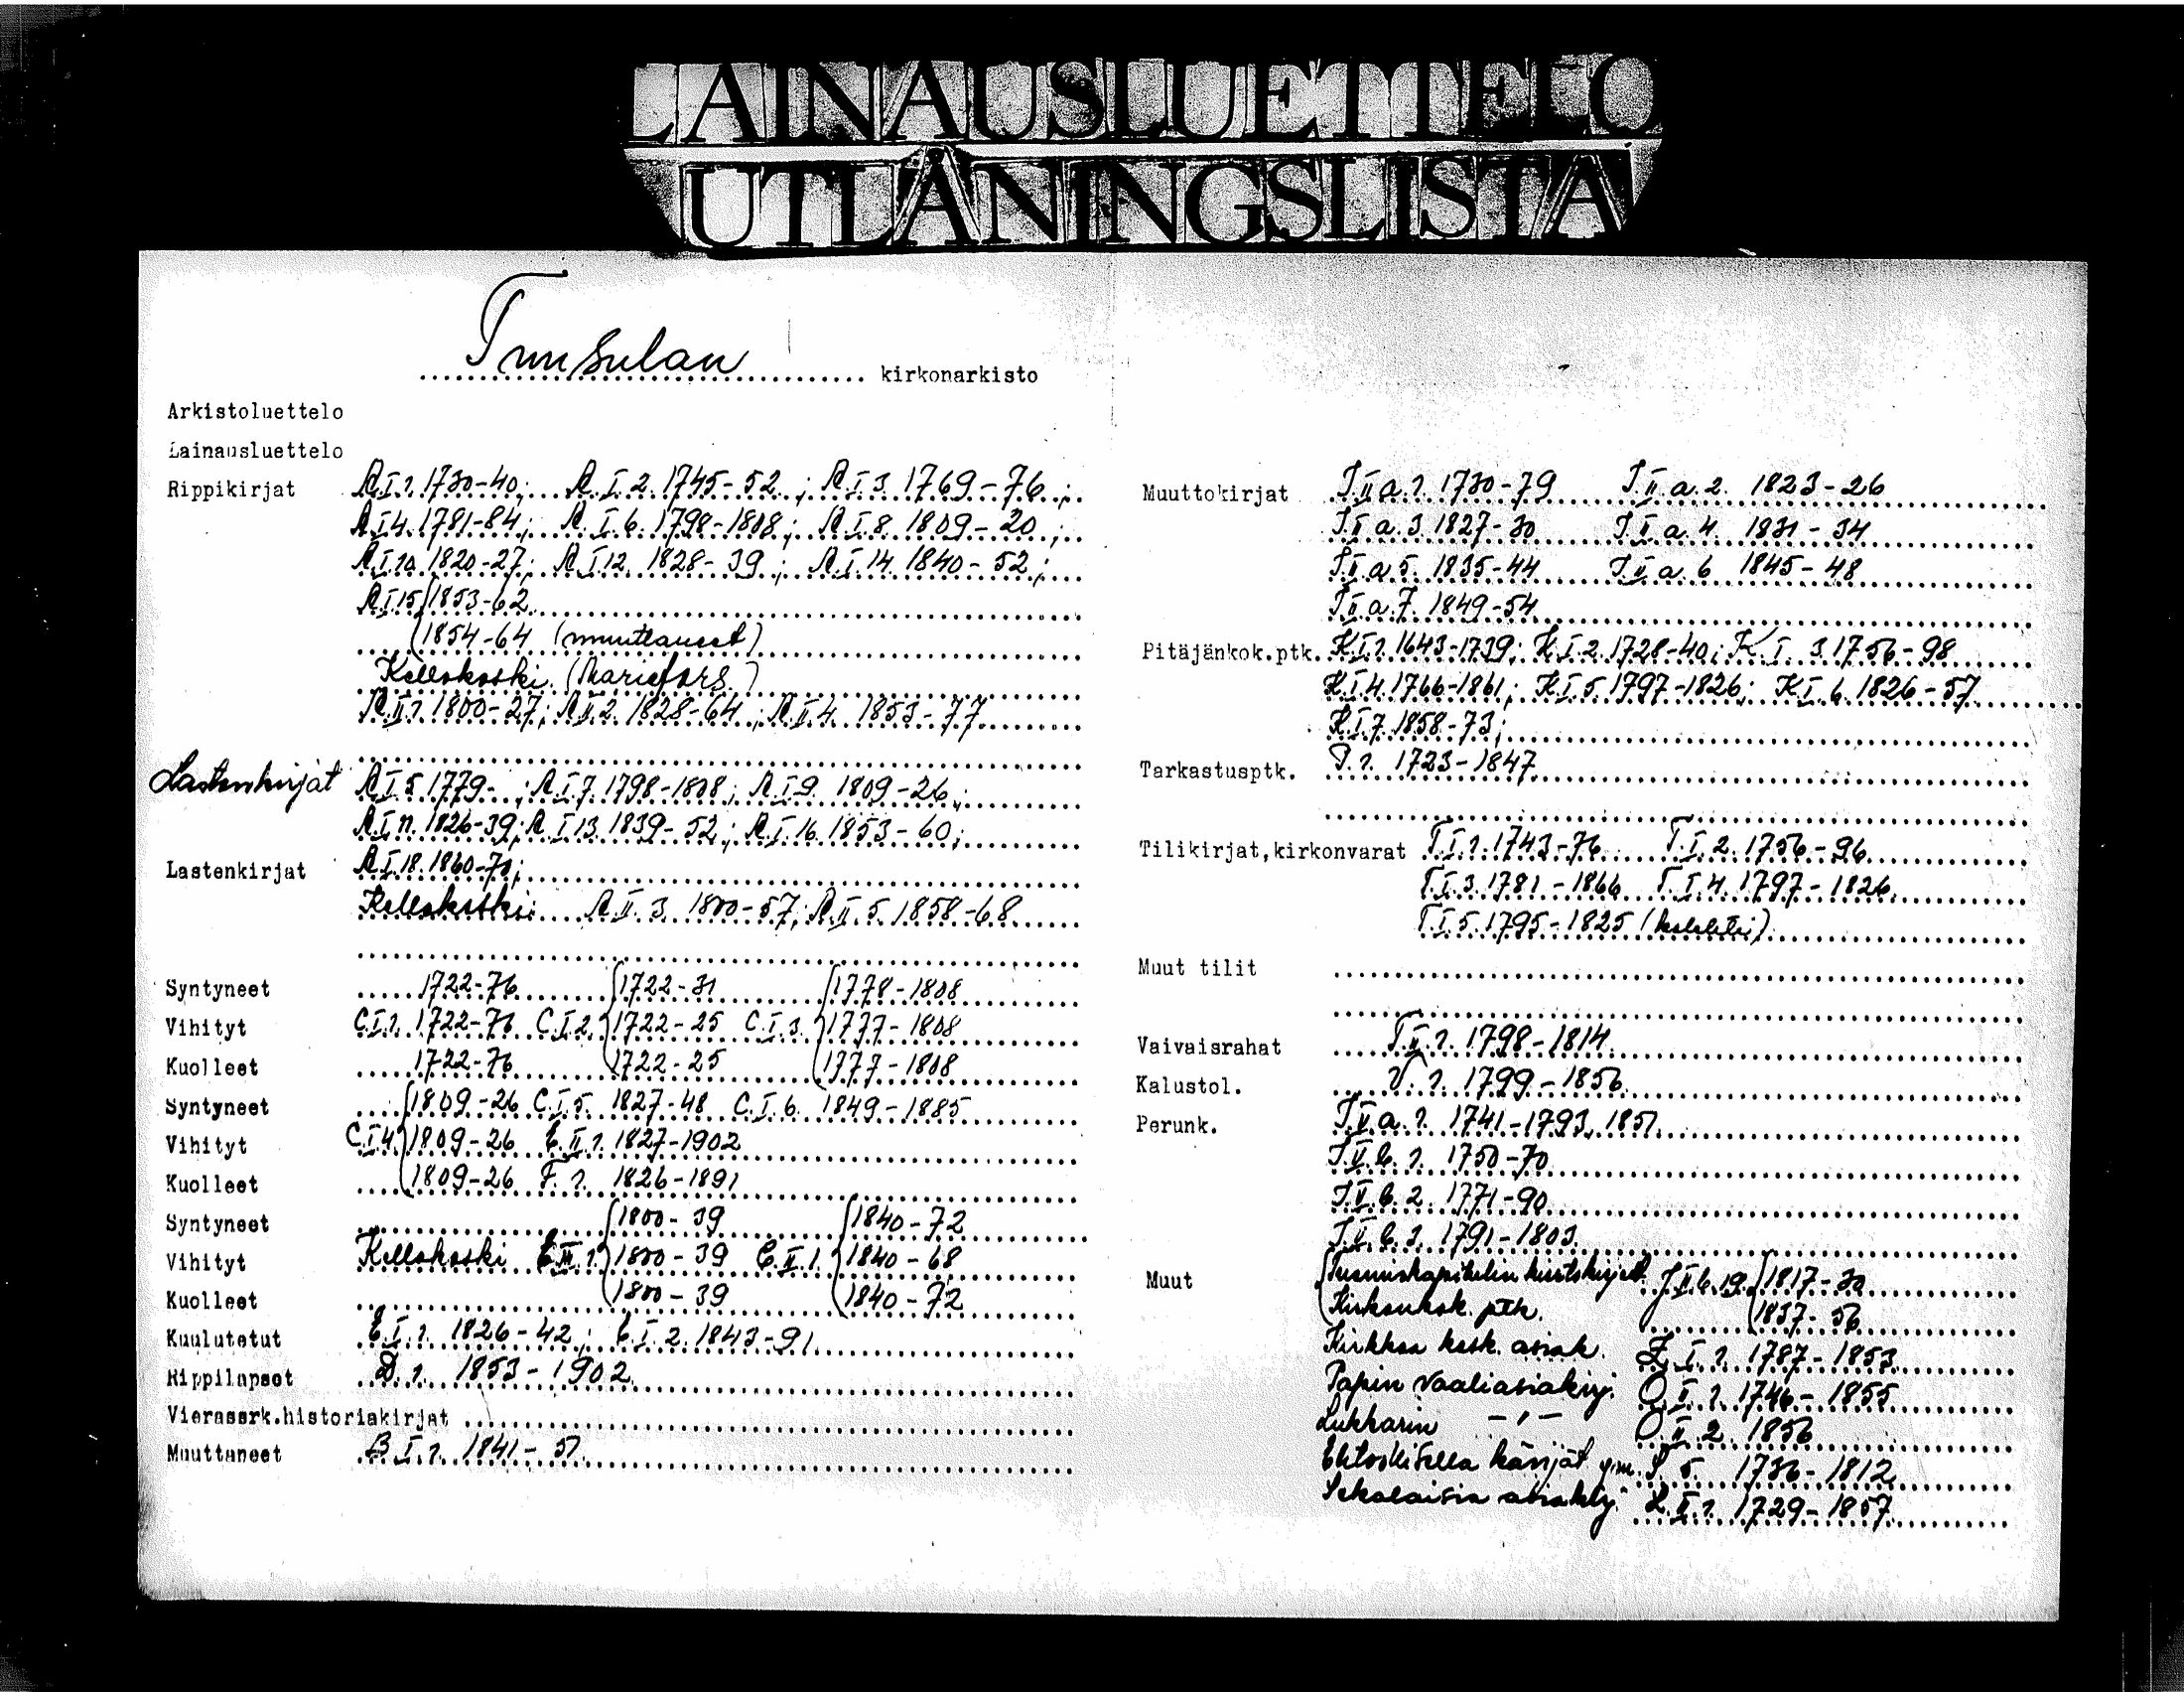 LAINAUSLUETTELO
UTLÅNINGSLISTA
Tuusulan kirkonarkisto
Arkistoluettelo
Lainausluettelo
Rippikirjat A.I.1. 1730-40; A.I.2. 1745-52; A.I.3. 1769-76;
A.I.4. 1781-84; A.I.6. 1798-1808; A.I.8. 1809-20;
A.I.10. 1820-27; A.I.12. 1828-39; A.I.14. 1840-52;
A.I.15 1853-62
1854-64 (muuttaneet)
Kellokoski (Mariefors)
A.II.1. 1800-27; A.II.2. 1828-64; A.II.4. 1853-77
Lastenkirjat A.I.5. 1779- ; A.I.7. 1798-1808; A.I.9. 1809-26;
A.I.11. 1826-39; A.I.13. 1839-52; A.I.16. 1853-60;
Lastenkirjat A.I.18. 1860-70;
Kellokoski: A.II.3. 1800-57; A.II.5. 1858-68
Syntyneet 1722-76 1722-31 1778-1808
Vihityt C.I.1. 1722-76 C.I.2. 1722-25 C.I.3. 1777-1808
Kuolleet 1722-76 1722-25 1777-1808
Syntyneet 1809-26 C.I.5. 1827-48 C.I.6. 1849-1885
Vihityt C.I.4. 1809-26 E.II.1. 1827-1902
Kuolleet 1809-26 F.1. 1826-1891
Syntyneet 1800-39 1840-72
Vihityt Kellokoski 1800-39 C.II.1. 1840-68
Kuolleet 1800-39 1840-72
Kuulutetut E.I.1. 1826-42; E.I.2. 1843-91
Rippilapset D.1. 1853-1902
Vierassrk.historiakirjat
Muuttaneet B.I.1. 1841-51
Muuttokirjat I.II.a.1. 1730-79 I.II.a.2. 1823-26
I.II.a.3. 1827-30 I.II.a.4. 1831-34
I.II.a.5. 1835-44 I.II.a.6 1845-48
I.II.a.7. 1849-54
Pitäjänkok.ptk. K.I.1. 1643-1739; K.I.2. 1728-40; K.I.3. 1756-98
K.I.4. 1766-1861; K.I.5. 1797-1826; K.I.6. 1826-57
K.I.7. 1858-73;
Tarkastusptk. P.1. 1723-1847
Tilikirjat,kirkonvarat T.I.1. 1743-76 T.I.2. 1756-96
T.I.3. 1781-1866 T.I.4. 1797-1826
T.I.5. 1795-1825 (kolehti)
Muut tilit
Vaivaisrahat T.II.1. 1798-1814
Kalustol. V.1. 1799-1856
Perunk. I.V.a.1. 1741-1793, 1851
I.V.b.1. 1750-70
I.V.b.2. 1771-90
I.V.b.3. 1791-1803
Muut Tuomiokapitulin kiertokirjeet J.II.b.19. 1817-30
Kirkonkok. ptk. 1837-56
Kirkkoa kosk. asiak. Z.I.1. 1787-1853
Papin vaaliasiakirj. O.I.1. 1746-1855
Lukkarin -"- O.II.2. 1856
Ehtoollisella kävijät ym. S.5. 1786-1812
Sekalaisia asiakirj. 1729-1857